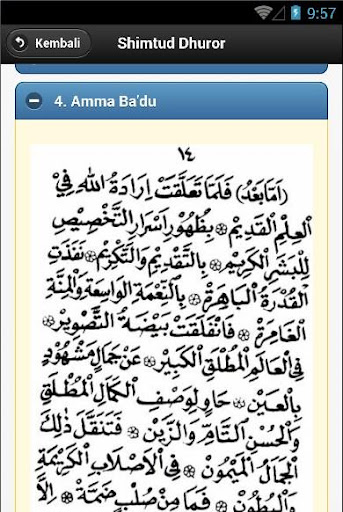 9:57
Kembali
Shimtud Dhuror
4. Amma Ba'du
١٤
(اَمَّابَعْدُ) فَلَمَّا تَعَلَّقَتْ اِرَادَةُ اللّٰهِ فِي
الْعِلْمِ الْقَدِيْمِ ۞ بِظُهُوْرِ اَسْرَارِ التَّخْصِيْصِ
لِلْبَشَرِ الْكَرِيْمِ ۞ بِالتَّقْدِيْمِ وَالتَّكْرِيْمِ ۞ نَفَذَتِ
الْقُدْرَةُ الْبَاهِرَةُ ۞ بِالنِّعْمَةِ الْوَاسِعَةِ وَالْمِنَّةِ
الْغَامِرَةِ ۞ فَانْفَلَقَتْ بَيْضَةُ التَّصْوِيْرِ ۞
فِى الْعَالَمِ الْمُطْلَقِ الْكَبِيْرِ ۞ عَنْ جَمَالٍ مَشْهُوْدٍ
بِالْعَيْنِ ۞ حَاوٍ لِوَصْفِ الْكَمَالِ الْمُطْلَقِ
وَالْحُسْنِ التَّامِّ وَالزَّيْنِ ۞ فَتَنَقَّلَ ذٰلِكَ
الْجَمَالُ الْمَيْمُوْنُ ۞ فِى الْاَصْلَابِ الْكَرِيْمَةِ
وَالْبُطُوْنِ ۞ فَمَا مِنْ صُلْبٍ ضَمَّهُ ۞ اِلَّا